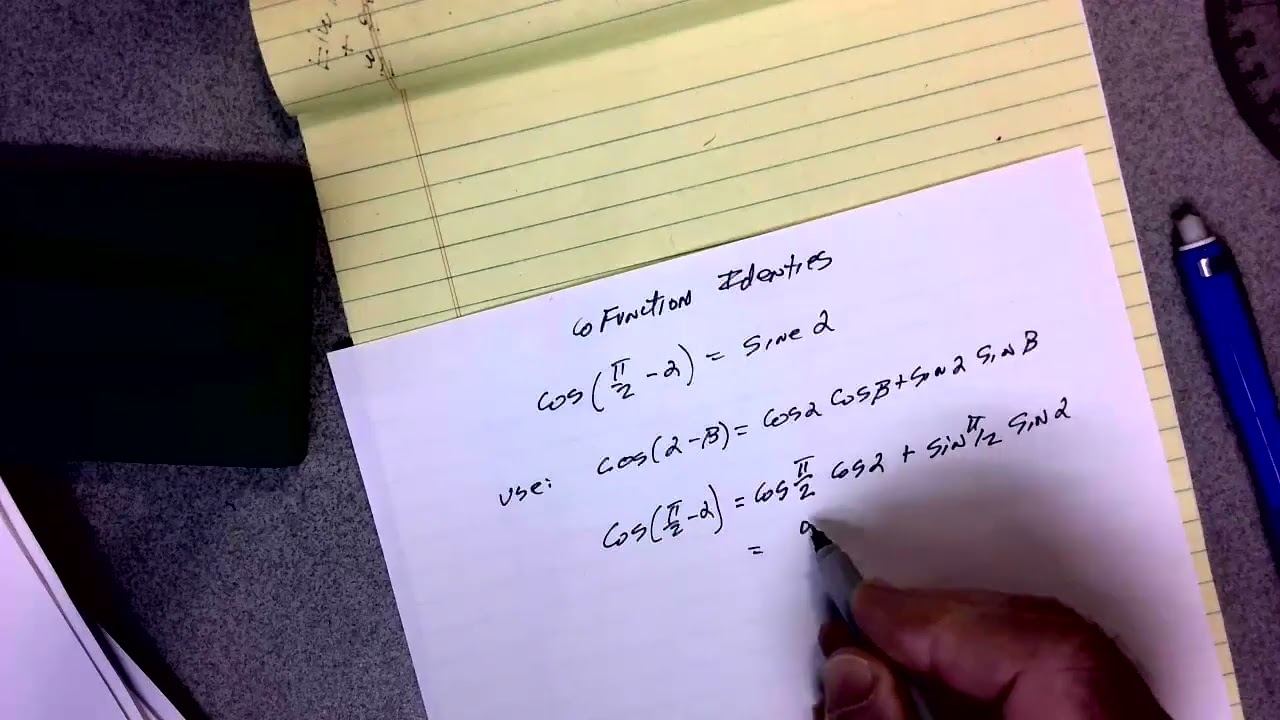 CoFunction Identies
Cos(π/2 - 2) = Sine 2
use: Cos(2-β) = Cos2 Cosβ + Sin2 SinB
Cos(π/2 - 2) = Cos π/2 Cos2 + Sin π/2 Sin2
= 0